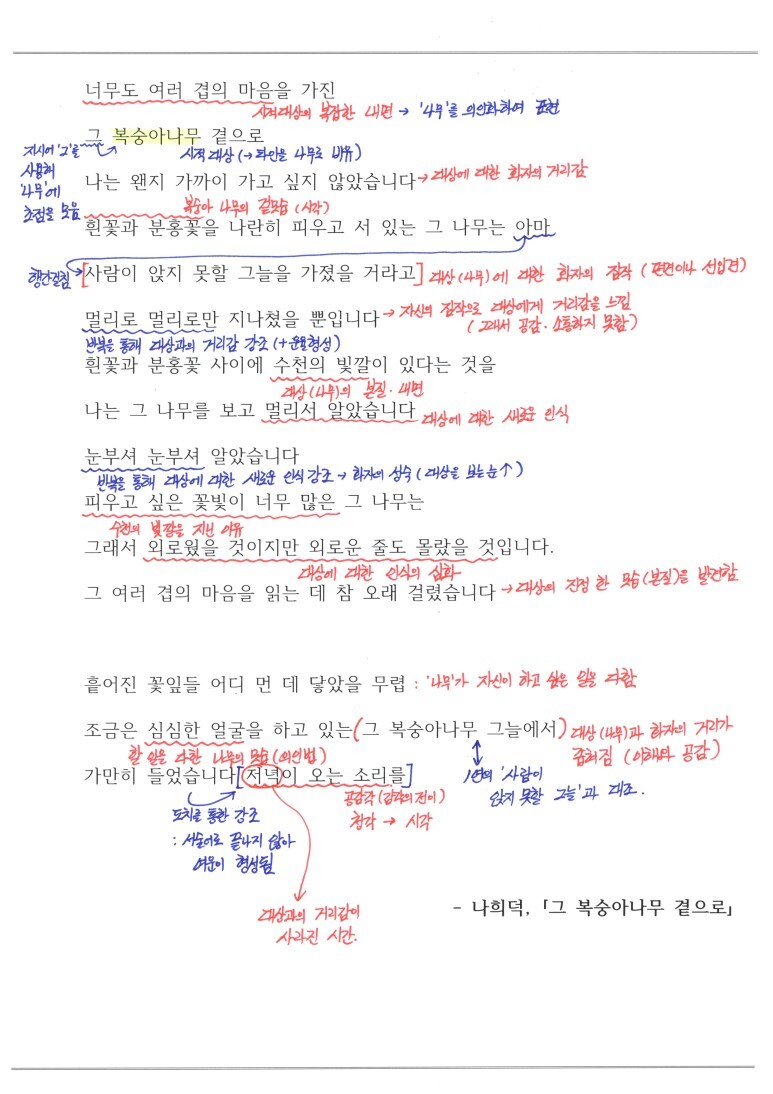 너무도 여러 겹의 마음을 가진
시적대상의 복잡한 내면 → '나무'를 의인화하여 표현
그 복숭아나무 곁으로
지시어 '그'를
사용해
'나무'에
초점을 모음
시적 대상 (→ 타인을 나무로 비유)
나는 왠지 가까이 가고 싶지 않았습니다 → 대상에 대한 화자의 거리감
복숭아 나무의 겉모습 (시각)
흰꽃과 분홍꽃을 나란히 피우고 서 있는 그 나무는 아마
행간걸침
[사람이 앉지 못할 그늘을 가졌을 거라고] 대상(나무)에 대한 화자의 짐작 (편견이나 선입견)
멀리로 멀리로만 지나쳤을 뿐입니다 → 자신의 짐작으로 대상에게 거리감을 느낌
(그래서 공감·소통하지 못함)
반복을 통해 대상과의 거리감 강조 (+운율형성)
흰꽃과 분홍꽃 사이에 수천의 빛깔이 있다는 것을
대상(나무)의 본질·내면
나는 그 나무를 보고 멀리서 알았습니다 대상에 대한 새로운 인식
눈부셔 눈부셔 알았습니다
반복을 통해 대상에 대한 새로운 인식 강조 → 화자의 성숙 (대상을 보는 눈↑)
피우고 싶은 꽃빛이 너무 많은 그 나무는
수천의 빛깔을 지닌 이유
그래서 외로웠을 것이지만 외로운 줄도 몰랐을 것입니다.
대상에 대한 인식의 심화
그 여러 겹의 마음을 읽는 데 참 오래 걸렸습니다 → 대상의 진정한 모습(본질)을 발견함
흩어진 꽃잎들 어디 먼 데 닿았을 무렵 : '나무'가 자신이 하고 싶은 일을 다함
조금은 심심한 얼굴을 하고 있는 (그 복숭아나무 그늘에서) 대상(나무)과 화자의 거리가
좁혀짐 (이해와 공감)
할 일을 다한 나무의 모습 (의인법)
가만히 들었습니다 [저녁이 오는 소리를]
1연의 '사람이
앉지 못할 그늘'과 대조.
공감각 (감각의 전이)
청각 → 시각
도치를 통한 강조
: 서술어로 끝나지 않아
여운이 형성됨
대상과의 거리감이
사라진 시간.
- 나희덕, 「그 복숭아나무 곁으로」